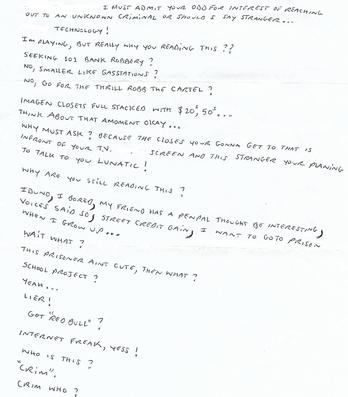 I MUST ADMIT YOUR ODD FOR INTEREST OF REACHING
OUT TO AN UNKNOWN CRIMINAL OR SHOULD I SAY STRANGER...
TECHNOLOGY!
IM PLAYING, BUT REALLY WHY YOU READING THIS??
SEEKING 101 BANK ROBBERY?
NO, SMALLER LIKE GASSTATIONS?
NO, GO FOR THE THRILL ROBB THE CARTEL?
IMAGEN CLOSETS FULL STACKED WITH $20s, 50s...
THINK ABOUT THAT AMOMENT OKAY...
WHY MUST ASK? BECAUSE THE CLOSES YOUR GONNA GET TO THAT IS
INFRONT OF YOUR T.V. SCREEN AND THIS STRANGER YOUR PLANING
TO TALK TO YOU LUNATIC!
WHY ARE YOU STILL READING THIS?
IDUNO, I BORED, MY FRIEND HAS A PENPAL THOUGHT BE INTERESTING,
VOICES SAID SO, STREET CREDIT GAIN, I WANT TO GOTO PRISON
WHEN I GROW UP...
WAIT WHAT?
THIS PRISONER AINT CUTE, THEN WHAT?
SCHOOL PROJECT?
YEAH...
LIER!
GOT "RED BULL"?
INTERNET FREAK, YESS!
WHO IS THIS?
"CRIM".
CRIM WHO?